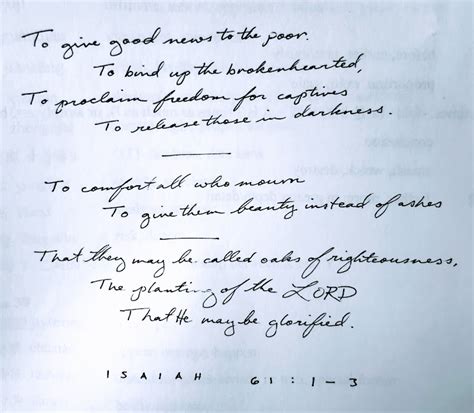 To give good news to the poor.
To bind up the brokenhearted,
To proclaim freedom for captives
To release those in darkness.
To comfort all who mourn
To give them beauty instead of ashes
That they may be called oaks of righteousness,
The planting of the LORD
That He may be glorified.
ISAIAH 61:1-3